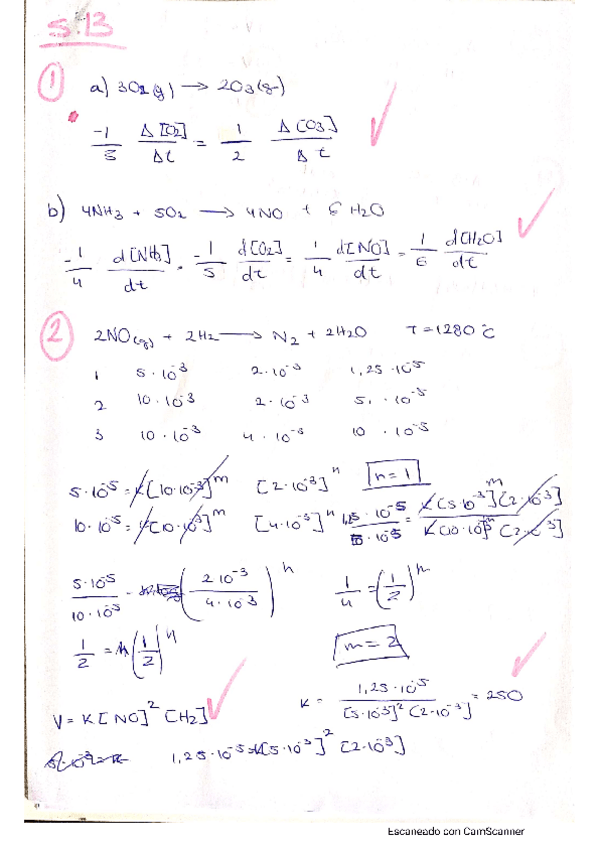 S.13
1
a) 3O2(g) → 2O3(g)
-1/3 Δ[O2]/Δt = 1/2 Δ[O3]/Δt
b) 4NH3 + 5O2 → 4NO + 6 H2O
-1/4 d[NH3]/dt = -1/5 d[O2]/dt = 1/4 d[NO]/dt = 1/6 d[H2O]/dt
2
2NO(g) + 2H2 → N2 + 2H2O T = 1280 °C
1 5·10^-3 2·10^-3 1,25·10^-5
2 10·10^-3 2·10^-3 5·10^-5
3 10·10^-3 4·10^-3 10·10^-5
5·10^-5 = K[10·10^-3]^m [2·10^-3]^n n=1
10·10^-5 = K[10·10^-3]^m [4·10^-3]^n 1,25·10^-5/5·10^-5 = K[5·10^-3]^m [2·10^-3]/K[10·10^-3]^m [2·10^-3]
5·10^-5/10·10^-5 = (2·10^-3/4·10^-3)^n 1/4 = (1/2)^m
1/2 = (1/2)^n m=2
V = K[NO]^2 [H2] K = 1,25·10^-5/[5·10^-3]^2 [2·10^-3] = 250
1,25·10^-5 = K[5·10^-3]^2 [2·10^-3]
Escaneado con CamScanner